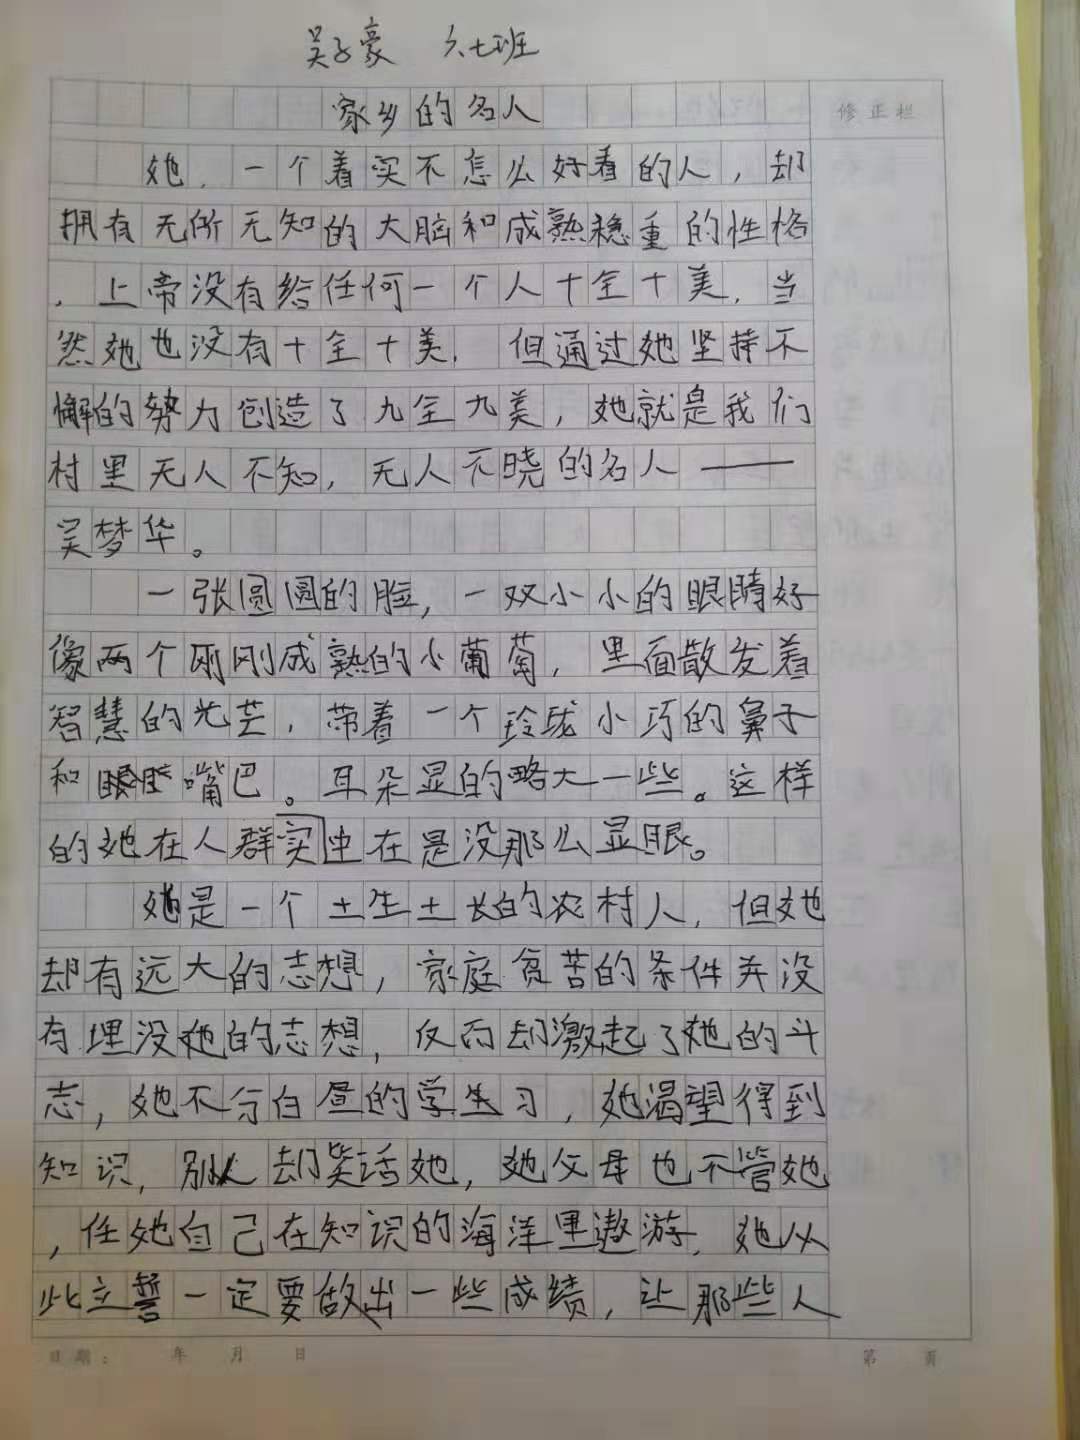 吴子豪 六七班
家乡的名人
修正栏
她，一个着实不怎么好看的人，却
拥有无所无知的大脑和成熟稳重的性格
，上帝没有给任何一个人十全十美，当
然她也没有十全十美，但通过她坚持不
懈的努力创造了九全九美，她就是我们
村里无人不知，无人不晓的名人——
吴梦华。
一张圆圆的脸，一双小小的眼睛好
像两个刚刚成熟的小葡萄，里面散发着
智慧的光芒，带着一个玲珑小巧的鼻子
和嘴巴。耳朵显的略大一些。这样
的她在人群实中在是没那么显眼。
她是一个土生土长的农村人，但她
却有远大的志想，家庭贫苦的条件并没
有埋没她的志想，反而却激起了她的斗
志，她不分白昼的学生习，她渴望得到
知识，别人却笑话她，她父母也不管她
，任她自己在知识的海洋里遨游，她从
此立誓一定要做出一些成绩，让那些人
日期： 年 月 日 第 页